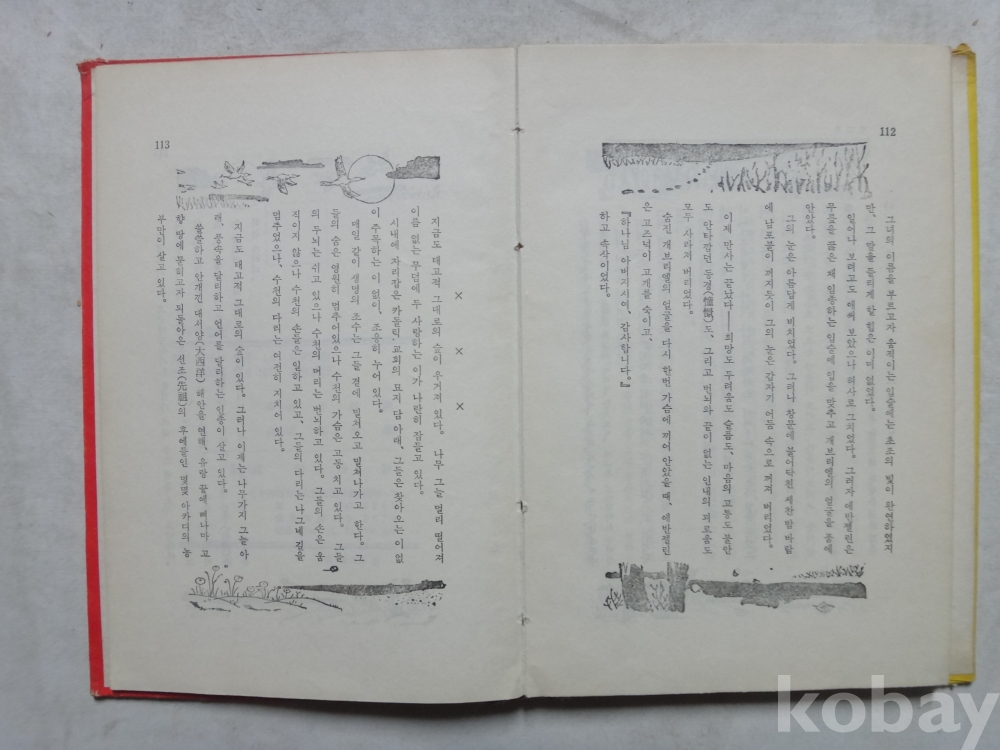 112
그녀의 이름을 부르고자 움직이는 입술에는 초조의 빛이 완연하였지
만, 그 말을 들리게 할 힘은 이미 없었다.
일어나 보려고도 애써 보았으나 허사로 그치었다. 그러자 에반젤린은
무릎을 꿇은 채 임종하는 입술에 입을 맞추고 개브리엘의 얼굴을 품에
안았다.
그의 눈은 아름답게 비치었다. 그러나 창문에 불어닥친 세찬 밤 바람
에 남포불이 꺼지듯이 그의 눈은 갑자기 어둠 속으로 꺼져 버리었다.
이제 만사는 끝났다――희망도 두려움도 슬픔도, 마음의 고통도 불안
도 안타깝던 동경(憧憬)도, 그리고 번뇌와 끝이 없는 인내의 괴로움도
모두 사라져 버리었다.
숨진 개브리엘의 얼굴을 다시 한번 가슴에 껴어 안았을 때, 에반젤린
은 고즈넉이 고개를 숙이고,
『하나님 아버지시여, 감사합니다.』
하고 속삭이었다.
× × ×
113
지금도 태고적 그대로의 숲이 우거져 있다. 나무 그늘 멀리 떨어져
이름 없는 무덤에 두 사랑하는 이가 나란히 잠들고 있다.
시내에 자리잡은 카돌릭 교회의 묘지 담 아래, 그들은 찾아오는 이 없
이 주목하는 이 없이, 조용히 누어 있다.
매일 같이 생명의 조수는 그들 곁에 밀쳐오고 밀쳐나가고 한다. 그
들의 숨은 영원히 멈추어있으나 수천의 가슴은 고동 치고 있다. 그들
의 두뇌는 쉬고 있으나 수천의 머리는 번뇌하고 있다. 그들의 손은 움
직이지 않으나 수천의 손들은 일하고 있고, 그들의 다리는 나그네 길을
멈추었으나, 수천의 다리는 여전히 지치어 있다.
지금도 태고적 그대로의 숲이 있다. 그러나 이제는 나무가지 그늘 아
래, 풍속을 달리하고 언어를 달리하는 인종이 살고 있다.
쓸쓸하고 안개낀 대서양(大西洋) 해안을 연해, 유랑 끝에 떠나마 고
향 땅에 묻히고자 되돌아온 선조(先祖)의 후예들인 몇몇 아카디의 농
부만이 살고 있다.
kobay